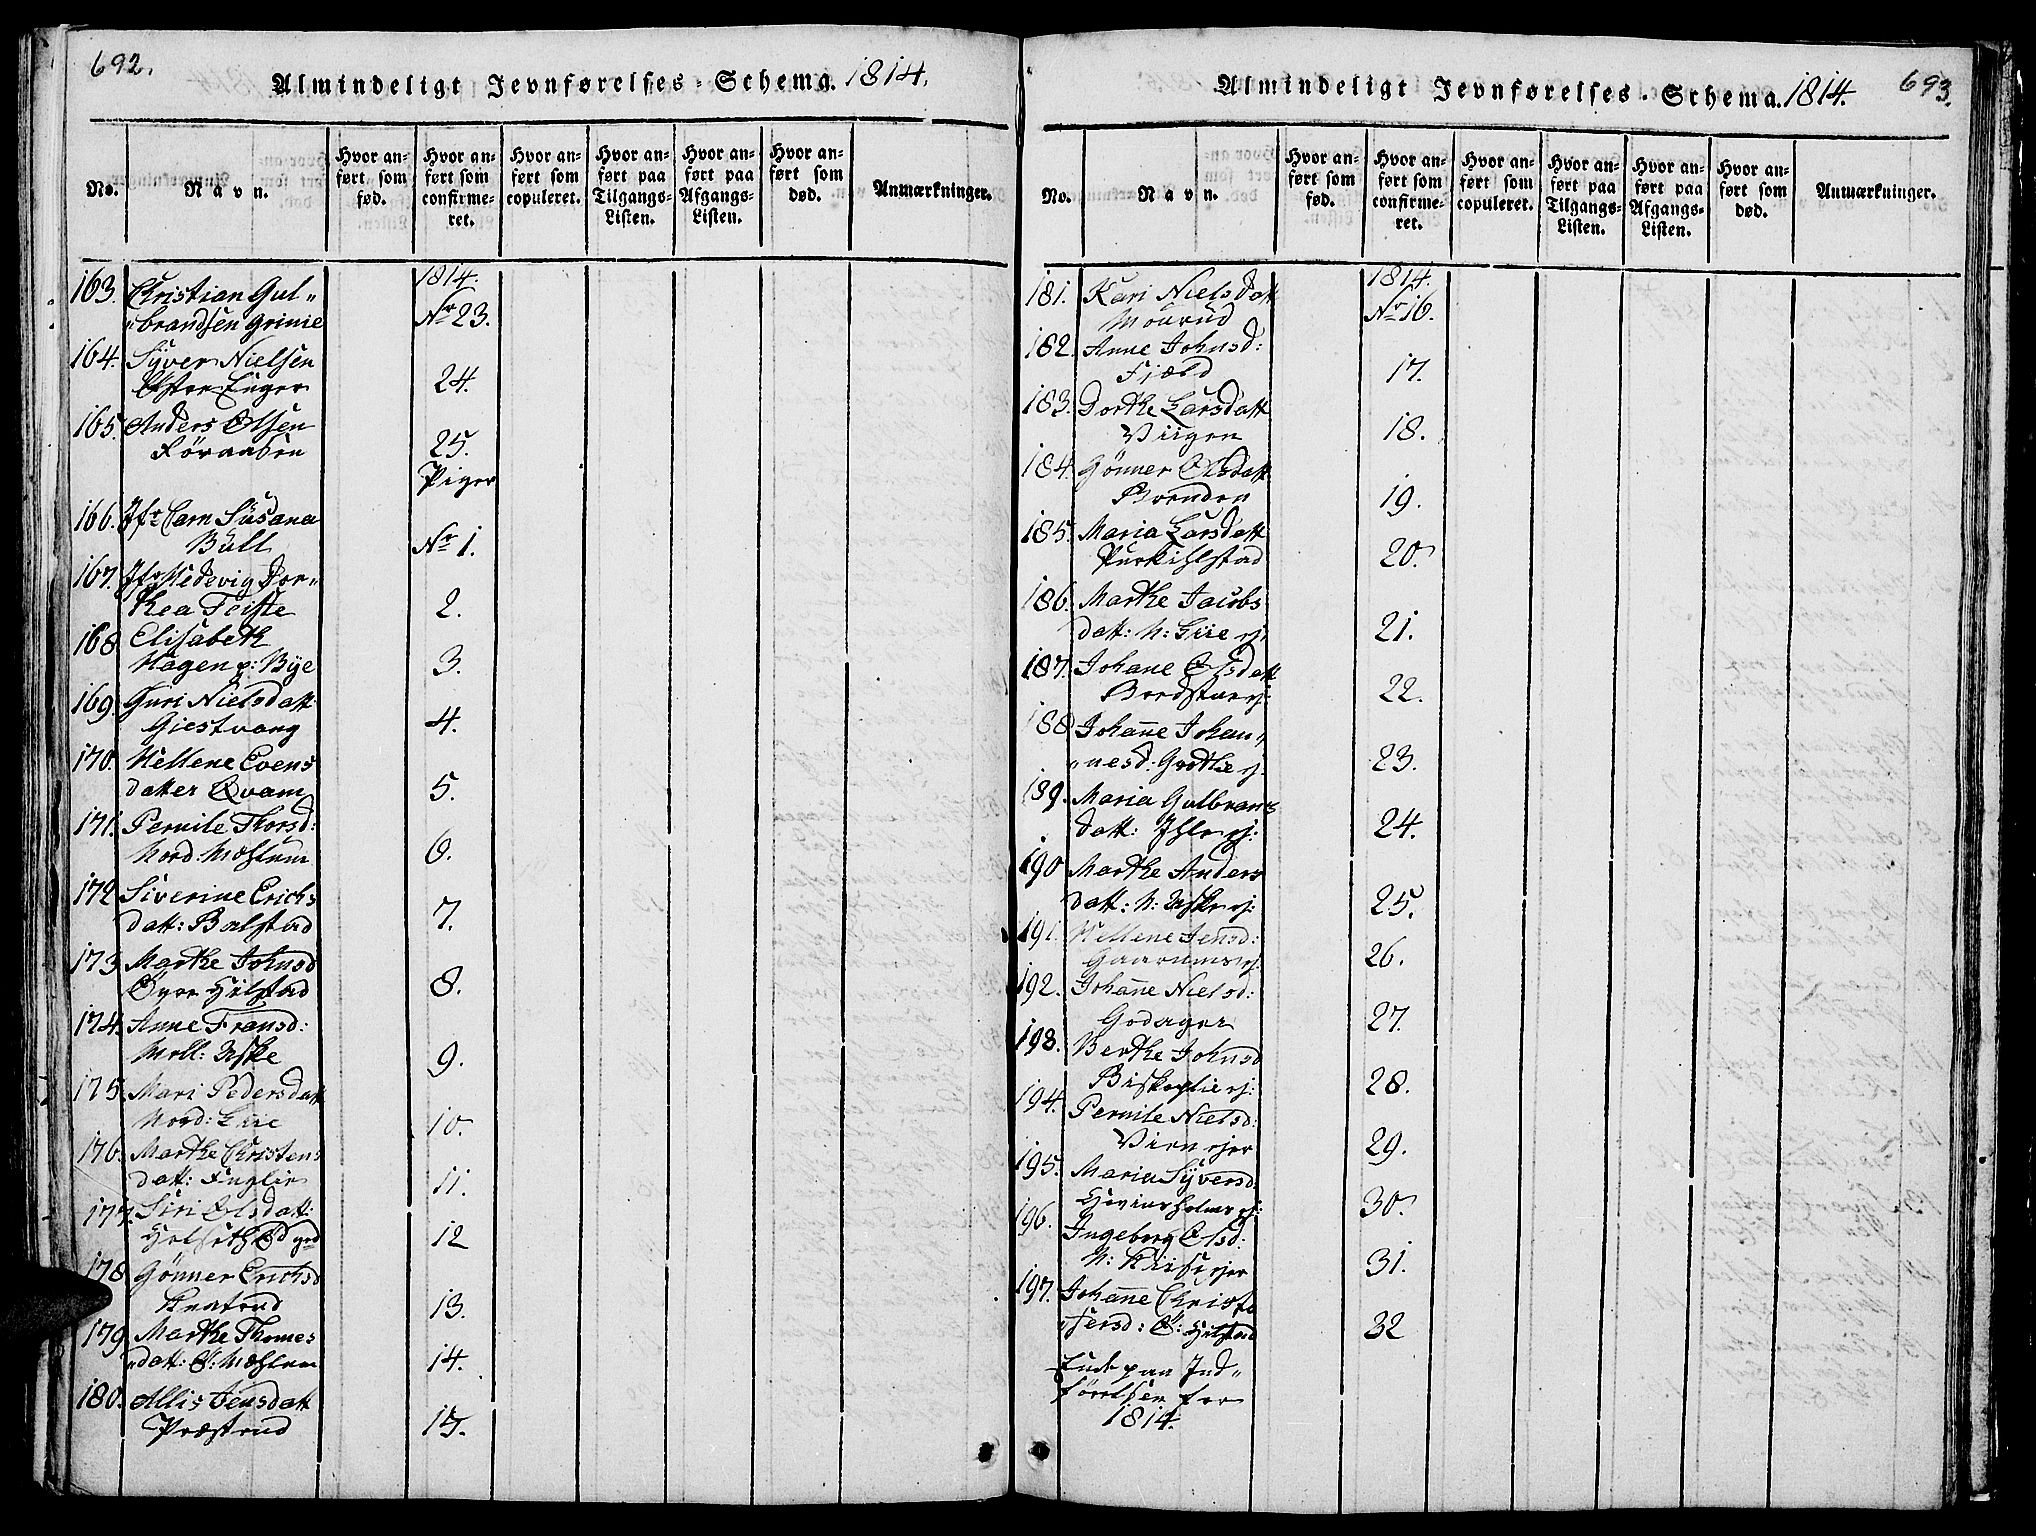 692.
Almindeligt Jevnførelses-Schema. 1814.
No.
Navn.
Hvor an-
ført som
fød.
Hvor an-
ført som
confirme-
ret.
Hvor an-
ført som
copuleret.
Hvor an-
ført paa
Tilgangs-
Listen.
Hvor an-
ført paa
Afgangs-
Listen.
Hvor an-
ført som
død.
Anmærkninger.
1814.
163. Christian Gul„
„brandsen Grime No 23.
164. Syver Nielsen
Øster Enger 24.
165. Anders Olsen
25.
Piger
166. Jfr Carn Susana
Bull No 1.
167. Jfr Hedevig Dor„
thea Feiste 2.
168 Elisabeth
Hagen p: Bye 3.
169. Guri Nielsdatt:
Giestvang 4.
170. Hellene Evens
datter Qvam 5.
171. Pernile Thorsd:
Nord: Mæhlum 6.
172 Siverine Erichs
datt: Balstad 7.
173 Marthe Johnsd
Øvre Hilstad 8.
174. Anne Fransd:
Mell: Aske 9.
175. Mari Pedersdatt
Nord: Liie 10.
176. Marthe Christens
datt: Fuglie 11.
177. Siri Olsdatt:
12
178 Gønner Erichsd
Knatrud 13.
179 Marthe Thomes
„datt: S: Mæhlum 14.
180. Allis Jensdatt
Præstrud 15.
693.
Almindeligt Jevnførelses-Schema. 1814.
No.
Navn.
Hvor an-
ført som
fød.
Hvor an-
ført som
confirme-
ret.
Hvor an-
ført som
copuleret.
Hvor an-
ført paa
Tilgangs-
Listen.
Hvor an-
ført paa
Afgangs-
Listen.
Hvor an-
ført som
død.
Anmærkninger.
1814.
181. Kari Nielsdatt
Mourud No 16.
182. Anne Johnsd:
Fjæld 17.
183. Dorthe Larsdatt
Viigen 18.
184. Gønner Olsdatt
Brenden 19.
185. Maria Larsdatt
20.
186. Marthe Jacobs
datt: N: Liie ej. 21.
187. Johane Olsdatt
22.
188 Johanne Johan„
„nesd: Grothie ej. 23.
189. Maria Gulbrans
datt: Ihle ej: 24.
190 Marthe Anders
datt: N: Aske ej: 25.
191. Hellene Jensd:
Gaarums ej: 26.
192. Johanne Nielsd:
Godager 27.
193. Berthe Johnsd
Biskoplie ej: 28.
194. Pernile Nielsd:
Vien ejer 29.
195. Maria Syversd:
30.
196. Ingeborg Olsd:
N: Kiise ejer 31.
197. Johanne Christo
„fersd: Ø: Hilstad 32
Ende paa Ind„
førelsen for
1814.